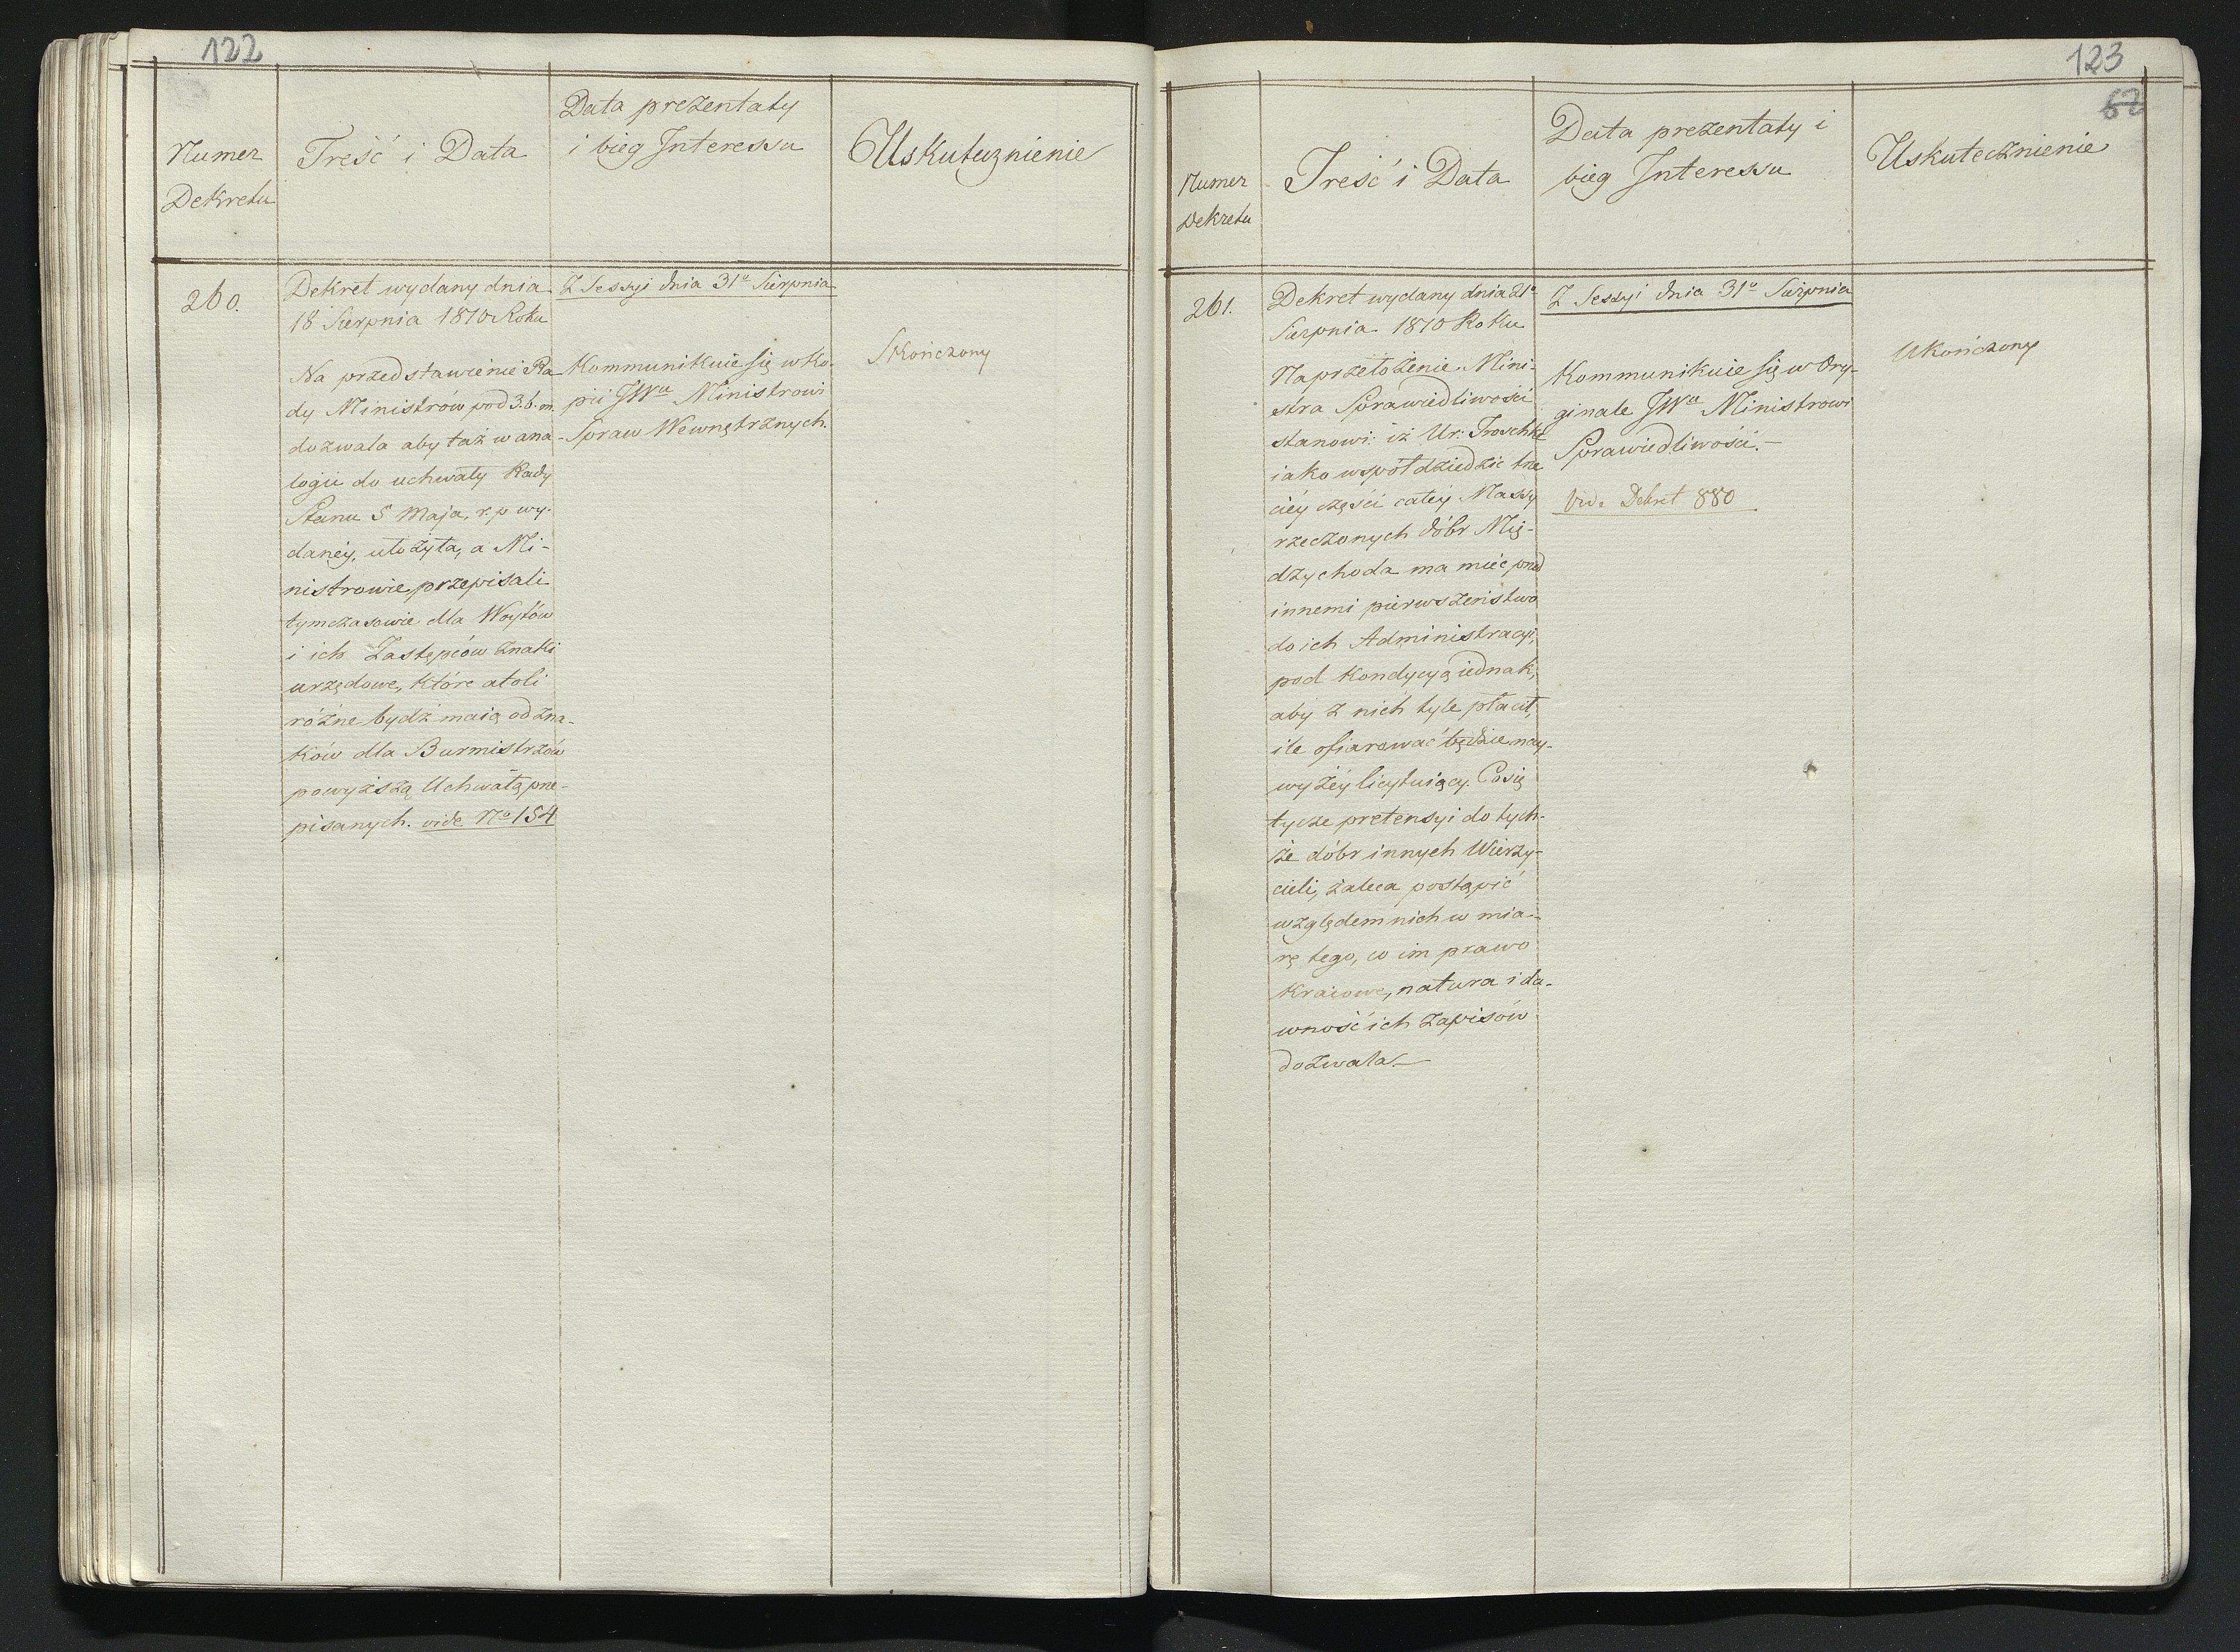 122
Numer
Dekretu
Treść i Data
Data prezentaty
i bieg Interessu
Uskutecznienie
260.
Dekret wydany dnia
18 Sierpnia 1810 Roku
Na przedstawienie Ra-
dy Ministrów pod 3. b. m.
dozwala aby taż w ana-
logii do uchwały Rady
Stanu 5 Maja, r. p wy-
daney, ułożyła, a Mi-
nistrowie przepisali
tymczasowie dla Woytów
i ich Zastępców znaki
urzędowe, które atoli
różne bydź maią od zna-
ków dla Burmistrzów
powyższą Uchwałą prze-
pisanych. vide No 154
Z Sessyi dnia 31o Sierpnia
Kommunikuie się w Ko-
pii JWu Ministrowi
Spraw Wewnętrznych.
Skończony
123
62
Numer
Dekretu
Treść i Data
Data prezentaty i
bieg Interessu
Uskutecznienie
261.
Dekret wydany dnia 21o
Sierpnia 1810 Roku
Na przełożenie Mini-
stra Sprawiedliwości
stanowi: iż Ur: Troschke
iako współdziedzic trze
ciéy części całéy Massy
rzeczonych dóbr Mię-
dzychoda ma mieć przed
innemi pierwszeństwo
do ich Administracyi,
pod kondycyą iednak,
aby z nich tyle płacił,
ile ofiarować będzie nay-
wyżéy licytuiący. Co się
tycze pretensyi do tych-
że dóbr innych Wierzy-
cieli, zaleca postąpić
względem nich w mia-
rę tego, co im prawo
Kraiowe, natura i da-
wność ich zapisów
dozwala.—
Z Sessyi dnia 31o Sierpnia
Kommunikuie się w Ory-
ginale JWu Ministrowi
Sprawiedliwości.—
Vide Dekret 880
Ukończony